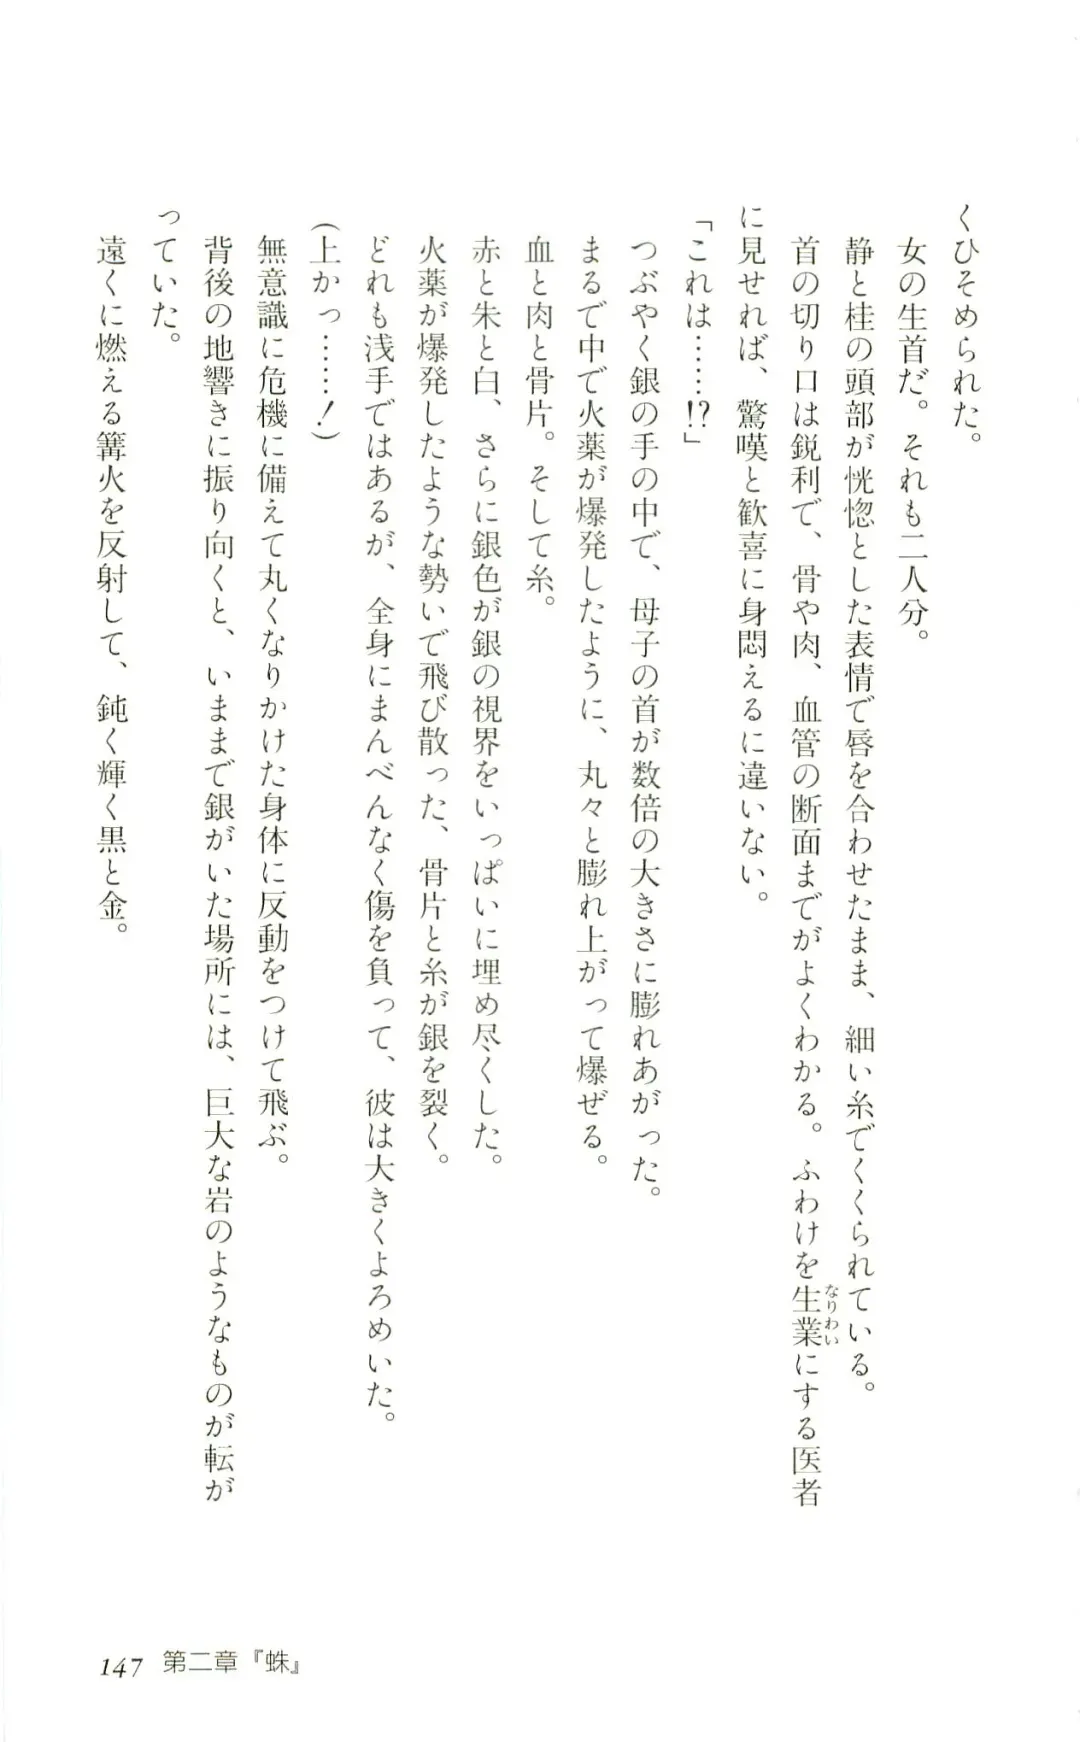 くひそめられた。
女の生首だ。それも二人分。
静と桂の頭部が恍惚とした表情で唇を合わせたまま、細い糸でくくられている。
首の切り口は鋭利で、骨や肉、血管の断面までがよくわかる。ふわけを生業にする医者
なりわい
に見せれば、驚嘆と歓喜に身悶えるに違いない。
「これは……!?」
つぶやく銀の手の中で、母子の首が数倍の大きさに膨れあがった。
まるで中で火薬が爆発したように、丸々と膨れ上がって爆ぜる。
血と肉と骨片。そして糸。
赤と朱と白、さらに銀色が銀の視界をいっぱいに埋め尽くした。
火薬が爆発したような勢いで飛び散った、骨片と糸が銀を裂く。
どれも浅手ではあるが、全身にまんべんなく傷を負って、彼は大きくよろめいた。
(上かっ……!)
無意識に危機に備えて丸くなりかけた身体に反動をつけて飛ぶ。
背後の地響きに振り向くと、いままで銀がいた場所には、巨大な岩のようなものが転が
っていた。
遠くに燃える篝火を反射して、鈍く輝く黒と金。
147 第二章『蛛』